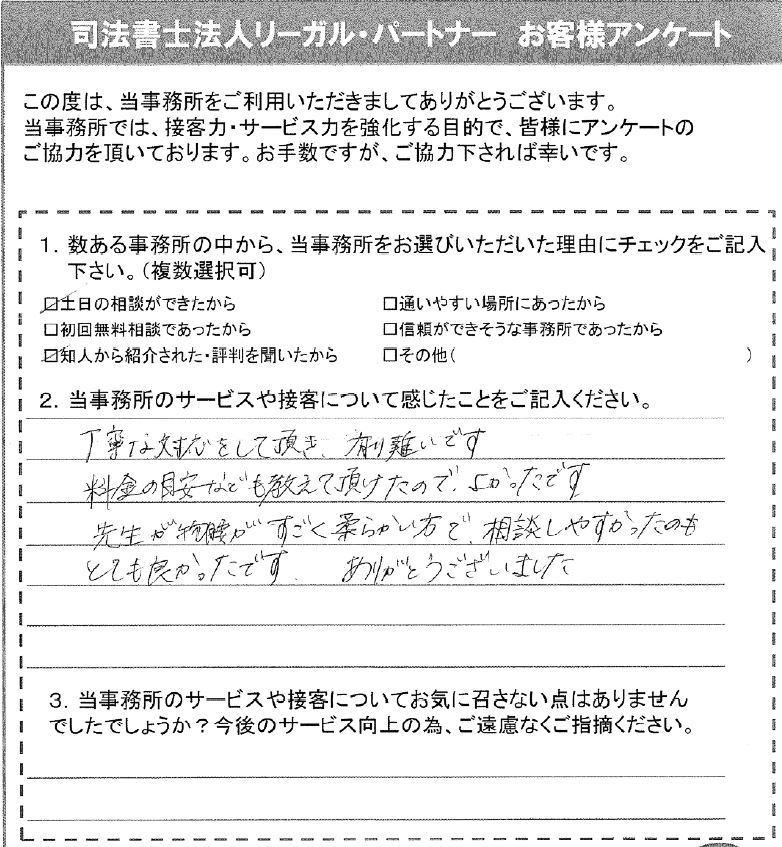 司法書士法人リーガル・パートナー お客様アンケート
この度は、当事務所をご利用いただきましてありがとうございます。
当事務所では、接客力・サービス力を強化する目的で、皆様にアンケートの
ご協力を頂いております。お手数ですが、ご協力下されば幸いです。
1. 数ある事務所の中から、当事務所をお選びいただいた理由にチェックをご記入
下さい。(複数選択可)
☑土日の相談ができたから
□通いやすい場所にあったから
□初回無料相談であったから
□信頼ができそうな事務所であったから
☑知人から紹介された・評判を聞いたから
□その他( )
2. 当事務所のサービスや接客について感じたことをご記入ください。
丁寧な対応をして頂き、有り難いです
料金の目安なども教えて頂けたので、よかったです
先生が物腰がすごく柔らかい方で、相談しやすかったのも
とても良かったです。 ありがとうございました
3. 当事務所のサービスや接客についてお気に召さない点はありません
でしたでしょうか?今後のサービス向上の為、ご遠慮なくご指摘ください。